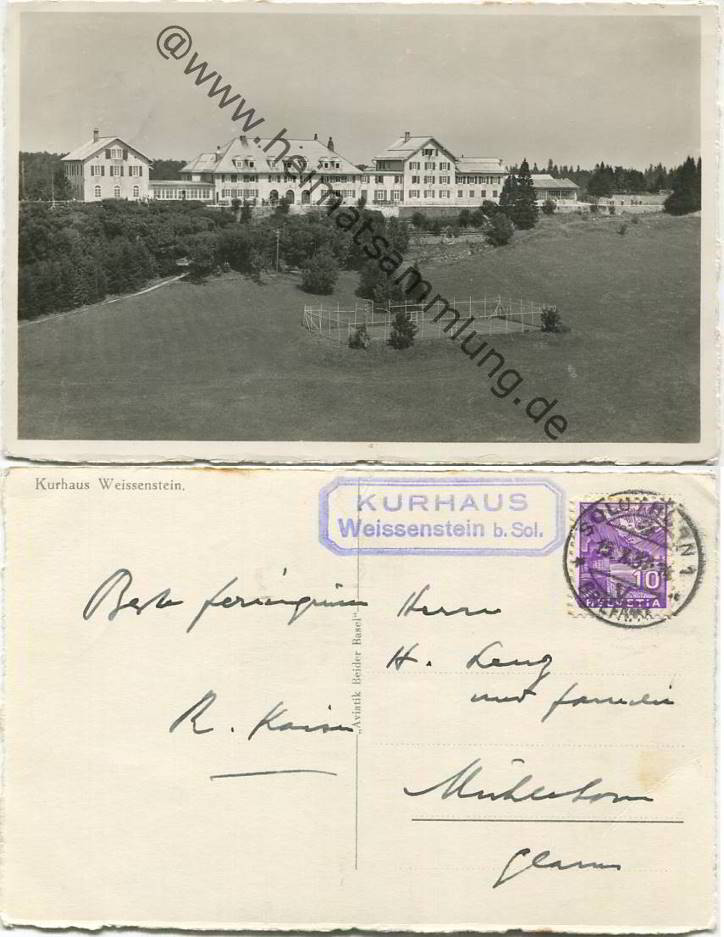 @www.heimatsammlung.de
Kurhaus Weissenstein.
KURHAUS
Weissenstein b. Sol.
SOLOTHURN 1
10
HELVETIA
Beste Feriengrüsse
R. Kaiser
"Aviatik Beider Basel"
Herrn
H. Leng
und Familie
Mühlehorn
Glarus